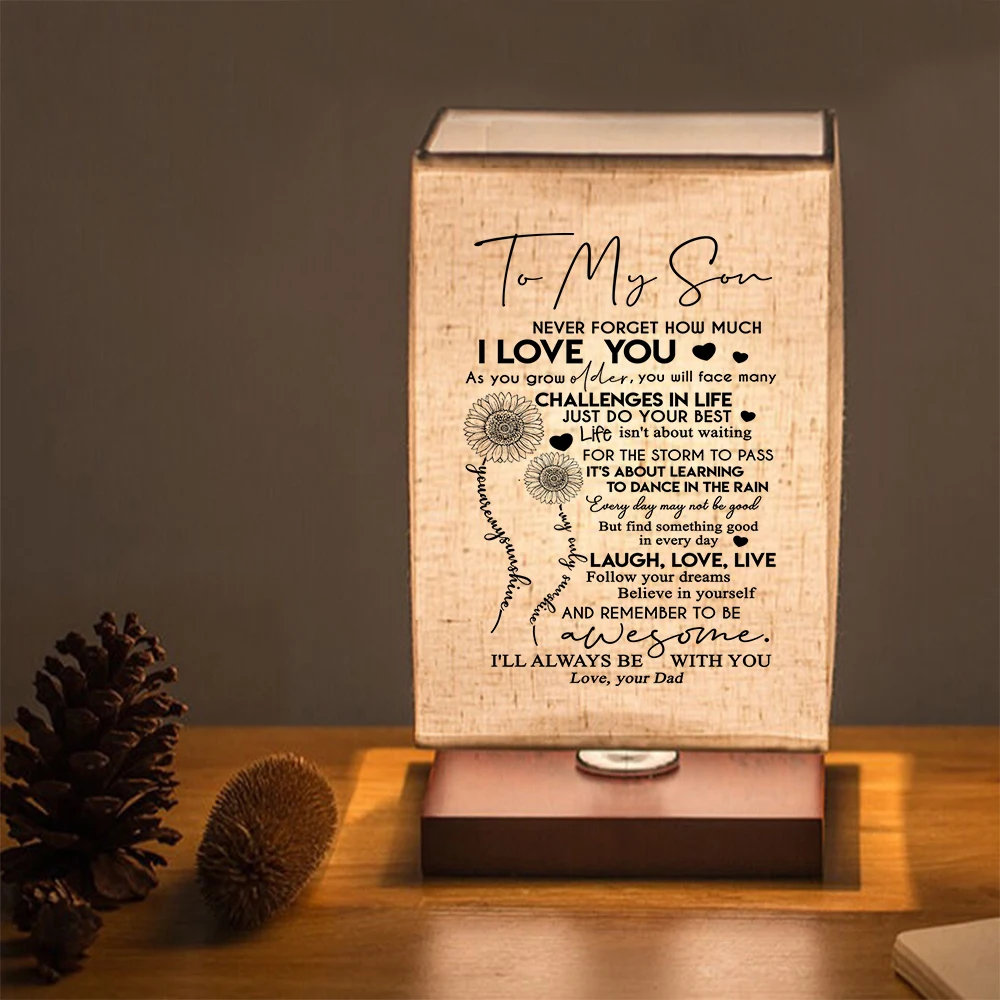 To My Son
NEVER FORGET HOW MUCH
I LOVE YOU
As you grow older, you will face many
CHALLENGES IN LIFE
JUST DO YOUR BEST
Life isn't about waiting
FOR THE STORM TO PASS
IT'S ABOUT LEARNING
TO DANCE IN THE RAIN
Every day may not be good
But find something good
in every day
LAUGH, LOVE, LIVE
Follow your dreams
Believe in yourself
AND REMEMBER TO BE
awesome.
I'LL ALWAYS BE WITH YOU
Love, your Dad
youaremysunshine
my only sunshine